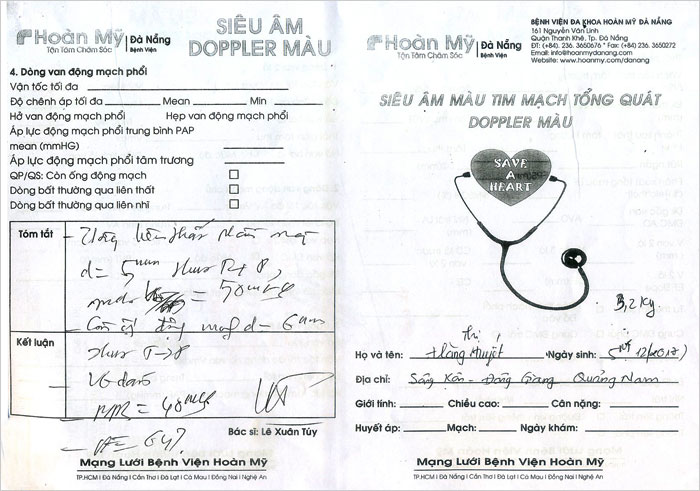 Hoàn Mỹ | Đà Nẵng
Tận Tâm Chăm Sóc Bệnh Viện
SIÊU ÂM
DOPPLER MÀU
4. Dòng van động mạch phổi
Vận tốc tối đa
Độ chênh áp tối đa Mean Min
Hở van động mạch phổi Hẹp van động mạch phổi
Áp lực động mạch phổi trung bình PAP
mean (mmHG)
Áp lực động mạch phổi tâm trương
QP/QS: Còn ống động mạch
Dòng bất thường qua liên thất
Dòng bất thường qua liên nhĩ
Tóm tắt
d= 5mm
= 50mmHg
d= 6mm
Kết luận
= 40mmHg
= 64%
Bác sĩ: Lê Xuân Túy
Mạng Lưới Bệnh Viện Hoàn Mỹ
TP.HCM | Đà Nẵng | Cần Thơ | Đà Lạt | Cà Mau | Đồng Nai | Nghệ An
Hoàn Mỹ | Đà Nẵng
Tận Tâm Chăm Sóc Bệnh Viện
BỆNH VIỆN ĐA KHOA HOÀN MỸ ĐÀ NẴNG
161 Nguyễn Văn Linh
Quận Thanh Khê, Tp. Đà Nẵng
ĐT: (+84). 236. 3650676 * Fax: (+84) 236. 3650272
Email: info@hoanmydanang.com
Website: www.hoanmy.com/danang
SIÊU ÂM MÀU TIM MẠCH TỔNG QUÁT
DOPPLER MÀU
SAVE
A
HEART
3,2 Kg
Họ và tên: Thị Hằng Khuyết Ngày sinh: 12/2017)
Địa chỉ: Sông Kôn - Đông Giang Quảng Nam
Giới tính: Chiều cao: Cân nặng:
Huyết áp: Mạch: Ngày khám:
Mạng Lưới Bệnh Viện Hoàn Mỹ
TP.HCM | Đà Nẵng | Cần Thơ | Đà Lạt | Cà Mau | Đồng Nai | Nghệ An